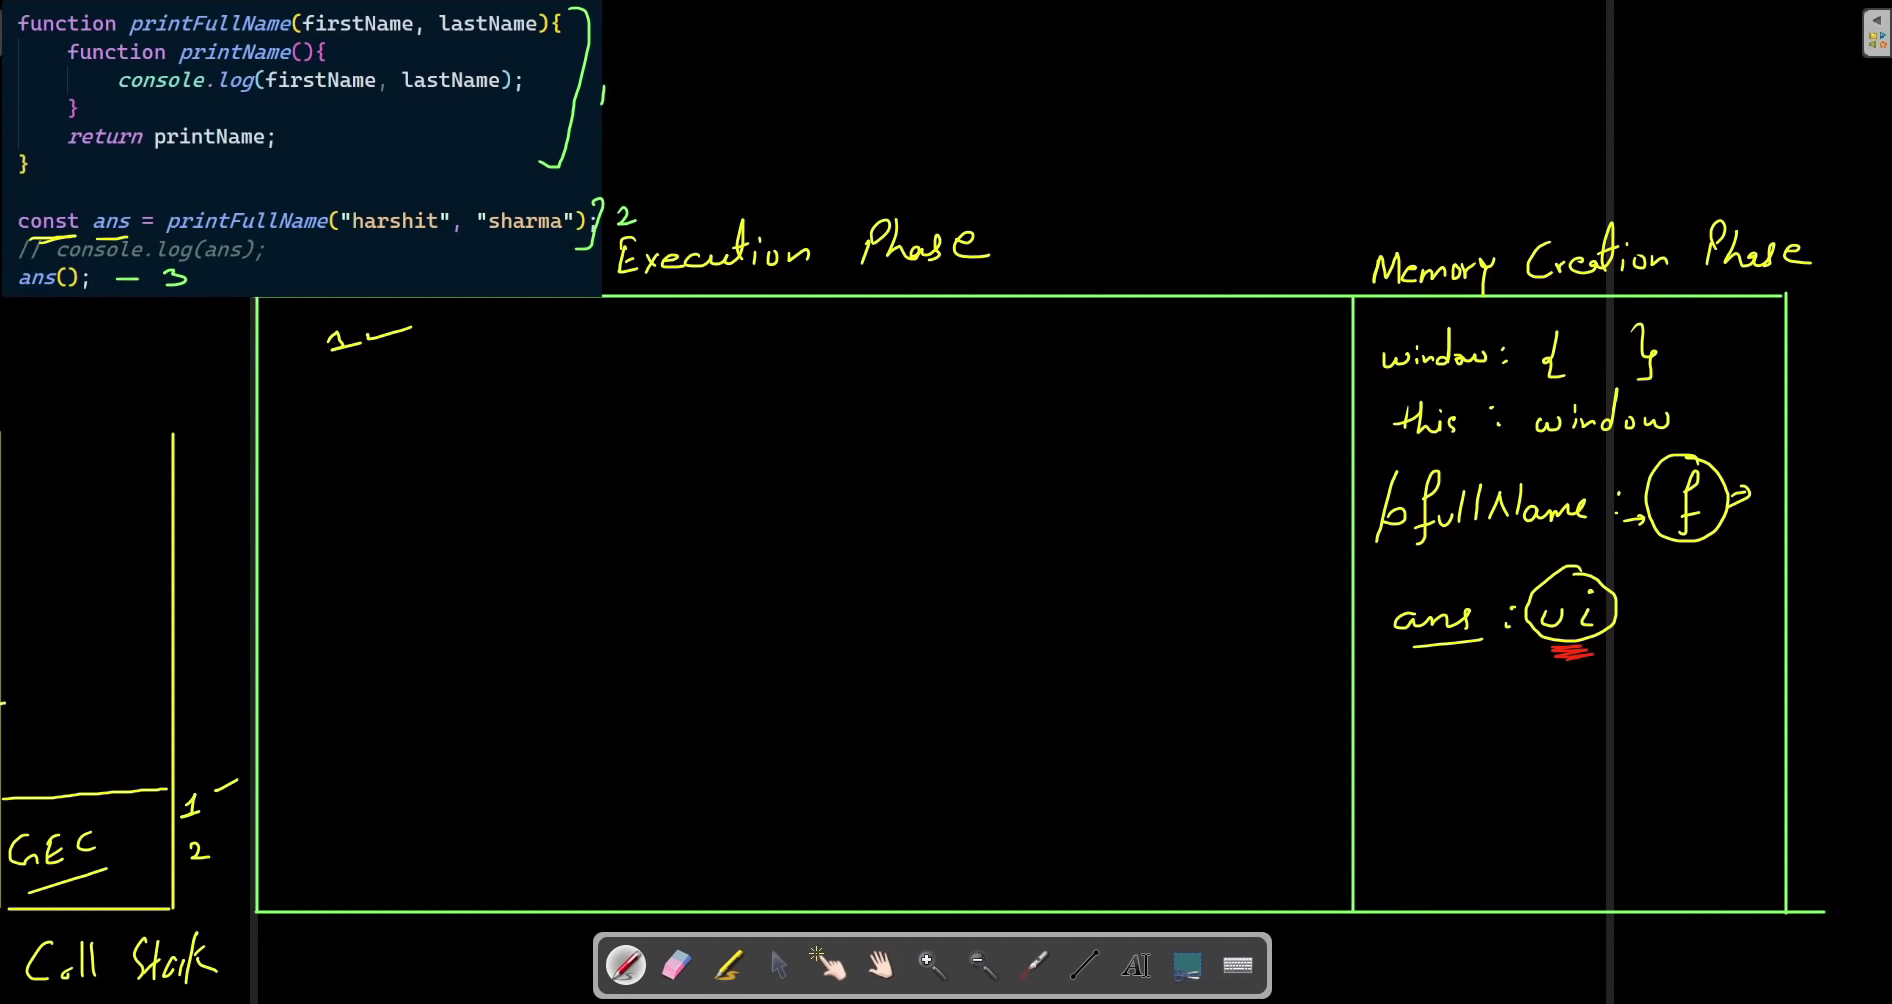 function printFullName(firstName, lastName){
function printName(){
console.log(firstName, lastName);
}
return printName;
}
1
const ans = printFullName("harshit", "sharma");
2
// console.log(ans);
ans(); - 3
Execution Phase
Memory Creation Phase
1
window : { }
this : window
pfullName : f
ans : ui
1
GEC
2
Call Stack
AI